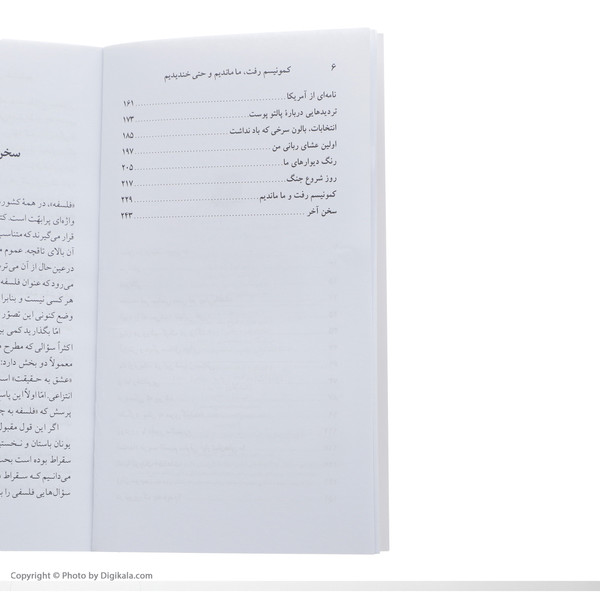 ۶ کمونیسم رفت، ما ماندیم و حتی خندیدیم
نامه‌ای از آمریکا ۱۶۱
تردیدهایی دربارهٔ پالتو پوست ۱۷۳
انتخابات، بالون سرخی که باد نداشت ۱۸۵
اولین عشای ربانی من ۱۹۷
رنگ دیوارهای ما ۲۰۵
روز شروع جنگ ۲۱۷
کمونیسم رفت و ما ماندیم ۲۲۹
سخن آخر ۲۴۳
سخن
«فلسفه»، در همهٔ کشور
واژه‌ای پرابهّت است. کتا
قرار می‌گیرند که متناسب
آن بالای تاقچه. عموم م
درعین‌حال از آن می‌تر
می‌رود که عنوان فلسفه
هر کسی نیست و بنابرا
وضع کنونی این تصوّر
امّا بگذارید کمی بی
اکثراً سؤالی که مطرح م
معمولاً دو بخش دارد:
«عشق به حقیقت» اسـ
انتزاعی. امّا اولاً این پاس
پرسش که «فلسفه به چ
اگر این قول مقبول
یونان باستان و نخستی
سقراط بوده است بحـ
می‌دانیم که سقراط
سؤال‌هایی فلسفی را بـ
Copyright © Photo by Digikala.com